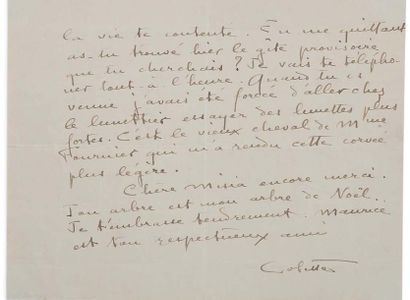 la vie te contente. En me quittant
as-tu trouvé hier le gîte provisoire
que tu cherchais ? Je vais te télépho-
ner tout à l'heure. Quand tu es
venue j'avais été forcée d'aller chez
le lunettier essayer des lunettes plus
fortes. C'est le vieux cheval de Mme
Fournier qui m'a rendu cette corvée
plus légère.
Chère Misia encore merci.
Ton arbre est mon arbre de Noël.
Je t'embrasse tendrement. Maurice
est ton respectueux ami
Colette